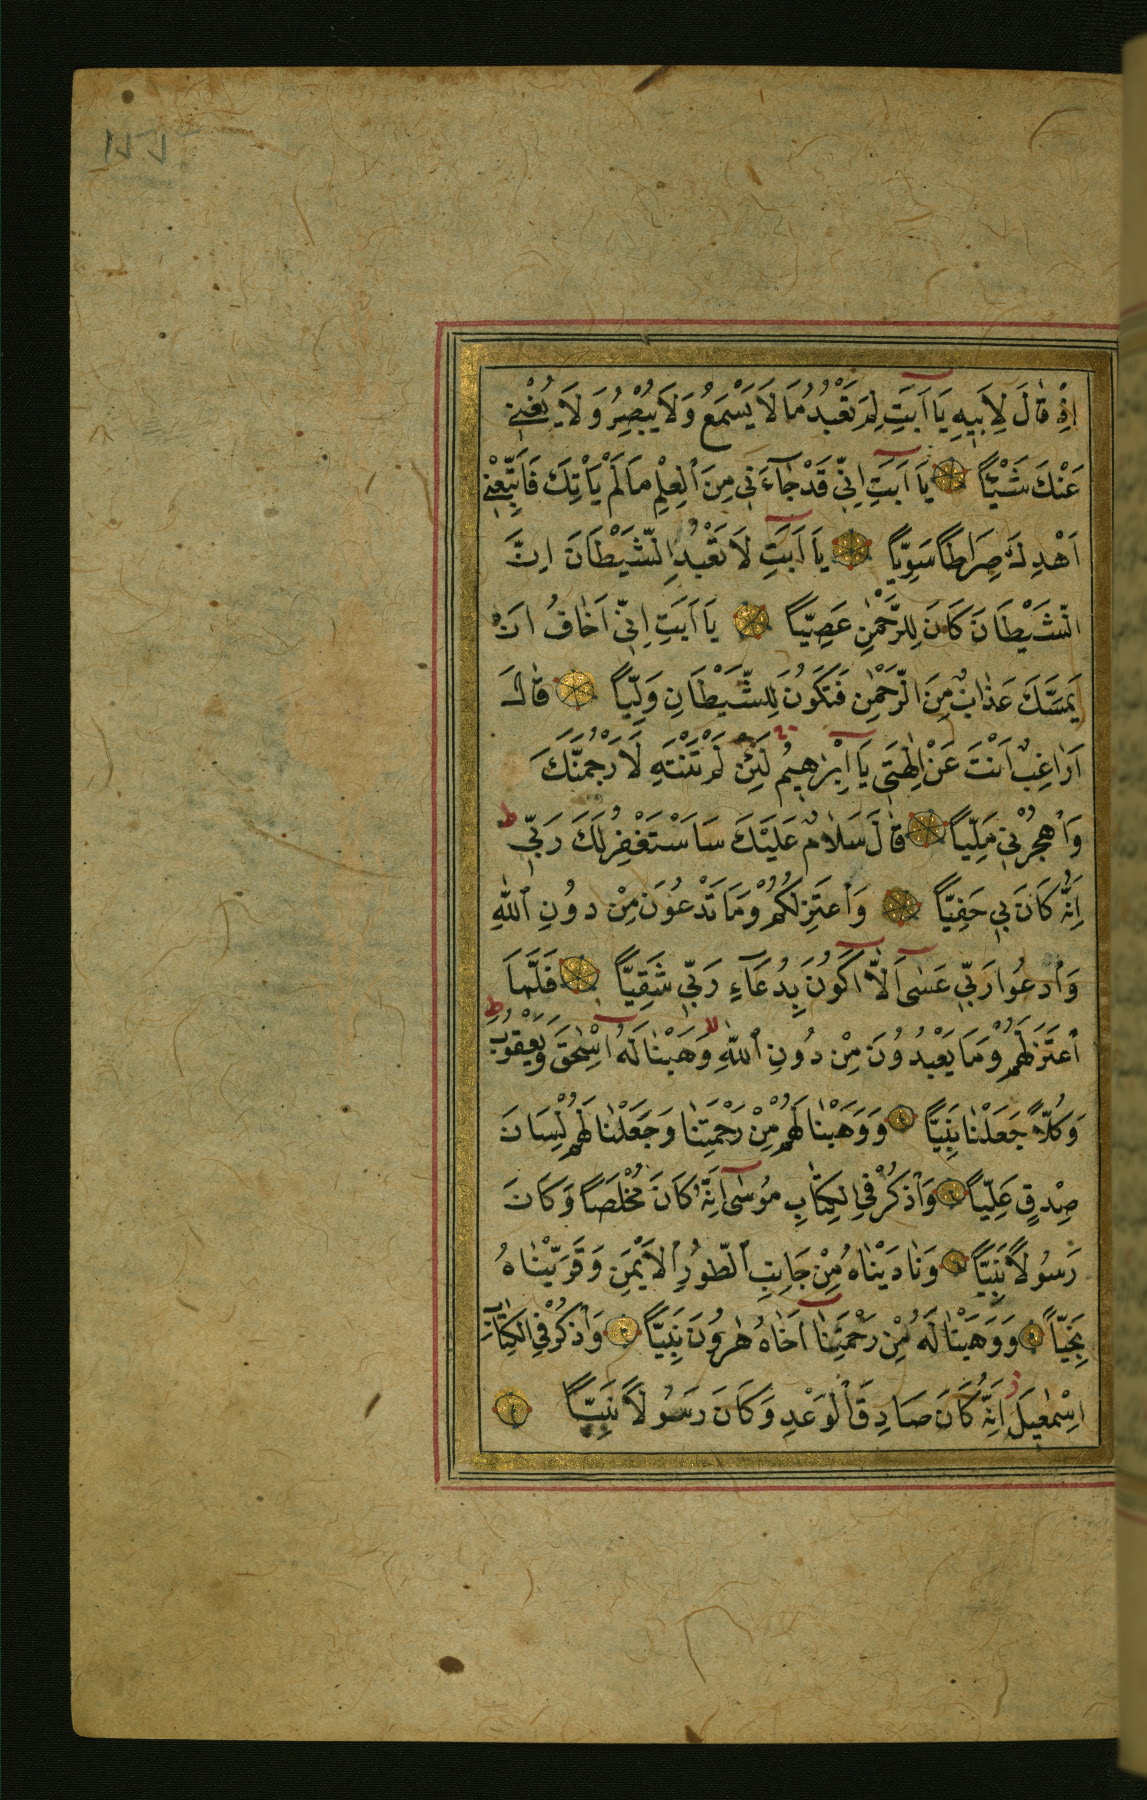 اِذْ قَالَ لِاَبِيهِ يَا اَبَتِ لِمَ تَعْبُدُ مَا لَا يَسْمَعُ وَلَا يُبْصِرُ وَلَا يُغْنِي
عَنْكَ شَيْئًا يَا اَبَتِ اِنِّي قَدْ جَآءَنِي مِنَ الْعِلْمِ مَا لَمْ يَأْتِكَ فَاتَّبِعْنِي
اَهْدِكَ صِرَاطًا سَوِيًّا يَا اَبَتِ لَا تَعْبُدِ الشَّيْطَانَ اِنَّ
الشَّيْطَانَ كَانَ لِلرَّحْمٰنِ عَصِيًّا يَا اَبَتِ اِنِّي اَخَافُ اَنْ
يَمَسَّكَ عَذَابٌ مِنَ الرَّحْمٰنِ فَتَكُونَ لِلشَّيْطَانِ وَلِيًّا قَالَ
اَرَاغِبٌ اَنْتَ عَنْ اٰلِهَتِي يَا اِبْرٰهِيمُ لَئِنْ لَمْ تَنْتَهِ لَاَرْجُمَنَّكَ
وَاهْجُرْنِي مَلِيًّا قَالَ سَلَامٌ عَلَيْكَ سَاَسْتَغْفِرُ لَكَ رَبِّي ط
اِنَّهُ كَانَ بِي حَفِيًّا وَاَعْتَزِلُكُمْ وَمَا تَدْعُونَ مِنْ دُونِ اللّٰهِ
وَاَدْعُوا رَبِّي عَسٰى اَلَّا اَكُونَ بِدُعَآءِ رَبِّي شَقِيًّا فَلَمَّا
اعْتَزَلَهُمْ وَمَا يَعْبُدُونَ مِنْ دُونِ اللّٰهِ وَهَبْنَا لَهُ اِسْحٰقَ وَيَعْقُوبَ ط
وَكُلًّا جَعَلْنَا نَبِيًّا وَوَهَبْنَا لَهُمْ مِنْ رَحْمَتِنَا وَجَعَلْنَا لَهُمْ لِسَانَ
صِدْقٍ عَلِيًّا وَاذْكُرْ فِي الْكِتَابِ مُوسٰى اِنَّهُ كَانَ مُخْلَصًا وَكَانَ
رَسُولًا نَبِيًّا وَنَادَيْنَاهُ مِنْ جَانِبِ الطُّورِ الْاَيْمَنِ وَقَرَّبْنَاهُ
نَجِيًّا وَوَهَبْنَا لَهُ مِنْ رَحْمَتِنَا اَخَاهُ هٰرُونَ نَبِيًّا وَاذْكُرْ فِي الْكِتَابِ
اِسْمٰعِيلَ اِنَّهُ كَانَ صَادِقَ الْوَعْدِ وَكَانَ رَسُولًا نَبِيًّا